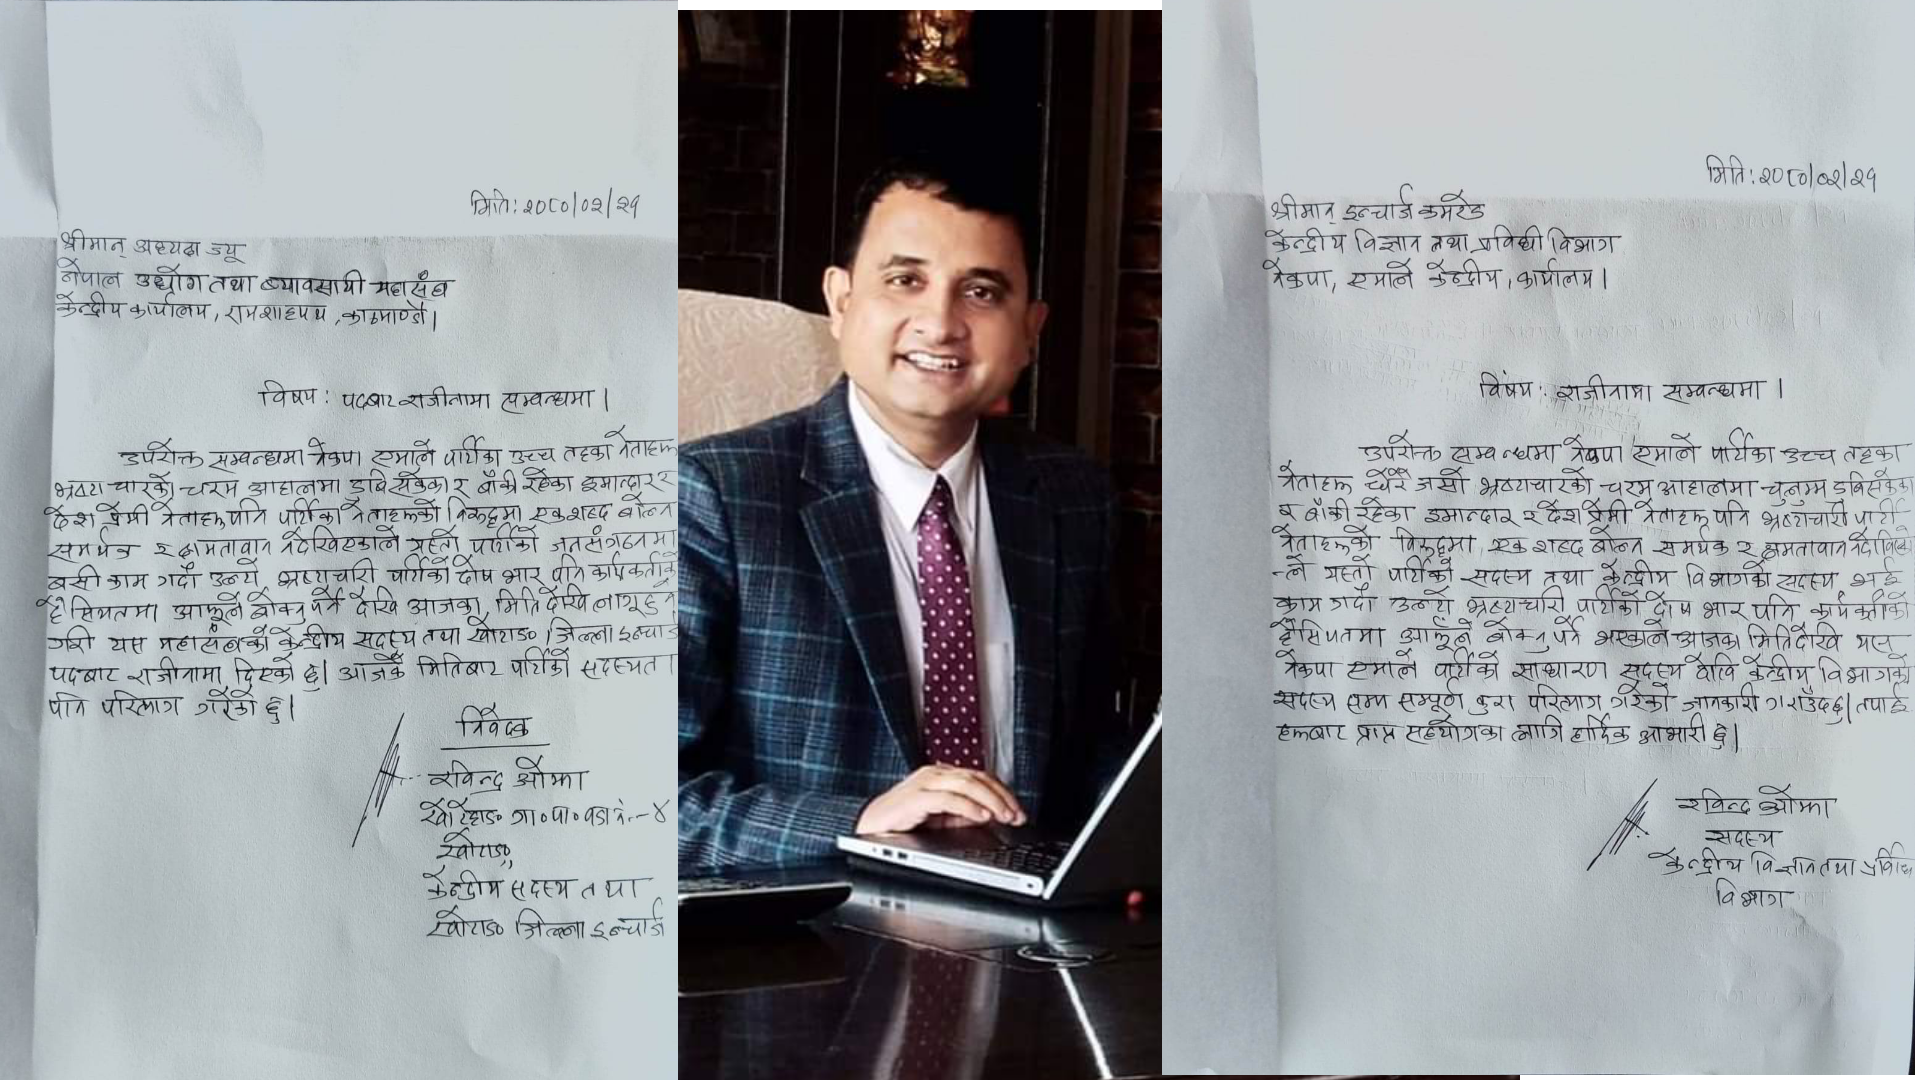 मिति: २०८०/०२/२१
श्रीमान् अध्यक्ष ज्यू
नेपाल उद्योग तथा ब्यावसायी महासंघ
केन्द्रीय कार्यालय, रामशाहपथ, काठमाण्डौं।
विषय: पदबाट राजीनामा सम्वन्धमा।
उपरोक्त सम्वन्धमा नेकपा एमाले पार्टिका उच्च तहका नेताहरू
भ्रष्टाचारको चरम आहालमा डुबिसकेका र बाँकी रहेका इमान्दार र
देश प्रेमी नेताहरू पनि पार्टिका नेताहरूको विरूद्धमा एक शब्द बोल्न
समर्थक र क्षमतावान नदेखिएकाले यस्तो पार्टिको जनसंगठनमा
बसी काम गर्दा उल्टै भ्रष्टाचारी पार्टिको दोष भार पनि कार्यकर्ताको
हैसियतमा आफूले बोक्नु पर्ने देखि आजका मिति देखि लागू हुने
गरी यस महासंघको केन्द्रीय सदस्य तथा खोटाङ जिल्ला इन्चार्ज
पदबाट राजीनामा दिएको छु। आजकै मितिबाट पार्टिको सदस्यता
पनि परित्याग गरेको छु।
निवेदक
रविन्द्र ओझा
खोटेहाङ गा०पा० वडा नं.-४
खोटाङ,
केन्द्रीय सदस्य तथा
खोटाङ जिल्ला इन्चार्ज
मिति: २०८०/०२/२१
श्रीमान् इन्चार्ज कमरेड
केन्द्रीय विज्ञान तथा प्रविधी विभाग
नेकपा, एमाले केन्द्रीय, कार्यालय।
विषय: राजीनामा सम्वन्धमा।
उपरोक्त सम्वन्धमा नेकपा एमाले पार्टिका उच्च तहका
नेताहरू धेरै जसो भ्रष्टाचारको चरम आहालमा चुर्लुम्म डुबिसकेका
र बाँकी रहेका इमान्दार र देश प्रेमी नेताहरू पनि भ्रष्टाचारी पार्टी
नेताहरूको विरूद्धमा, एक शब्द बोल्न समर्थक र क्षमतावान नदेखिए
-ले यस्तो पार्टिको सदस्य तथा केन्द्रीय विभागको सदस्य भई
काम गर्दा उल्टै भ्रष्टाचारी पार्टिको दोष भार पनि कार्यकर्ताको
हैसियतमा आफूले बोक्नु पर्ने भएकाले आजका मितिदेखि यस
नेकपा एमाले पार्टिको साधारण सदस्य देखि केन्द्रीय विभागको
सदस्य सम्म सम्पूर्ण कुरा परित्याग गरेको जानकारी गराउँदछु। तपाई
हरूबाट प्राप्त सहयोगका लागि हार्दिक आभारी छु।
रविन्द्र ओझा
सदस्य
केन्द्रीय विज्ञान तथा प्रविधि
विभाग